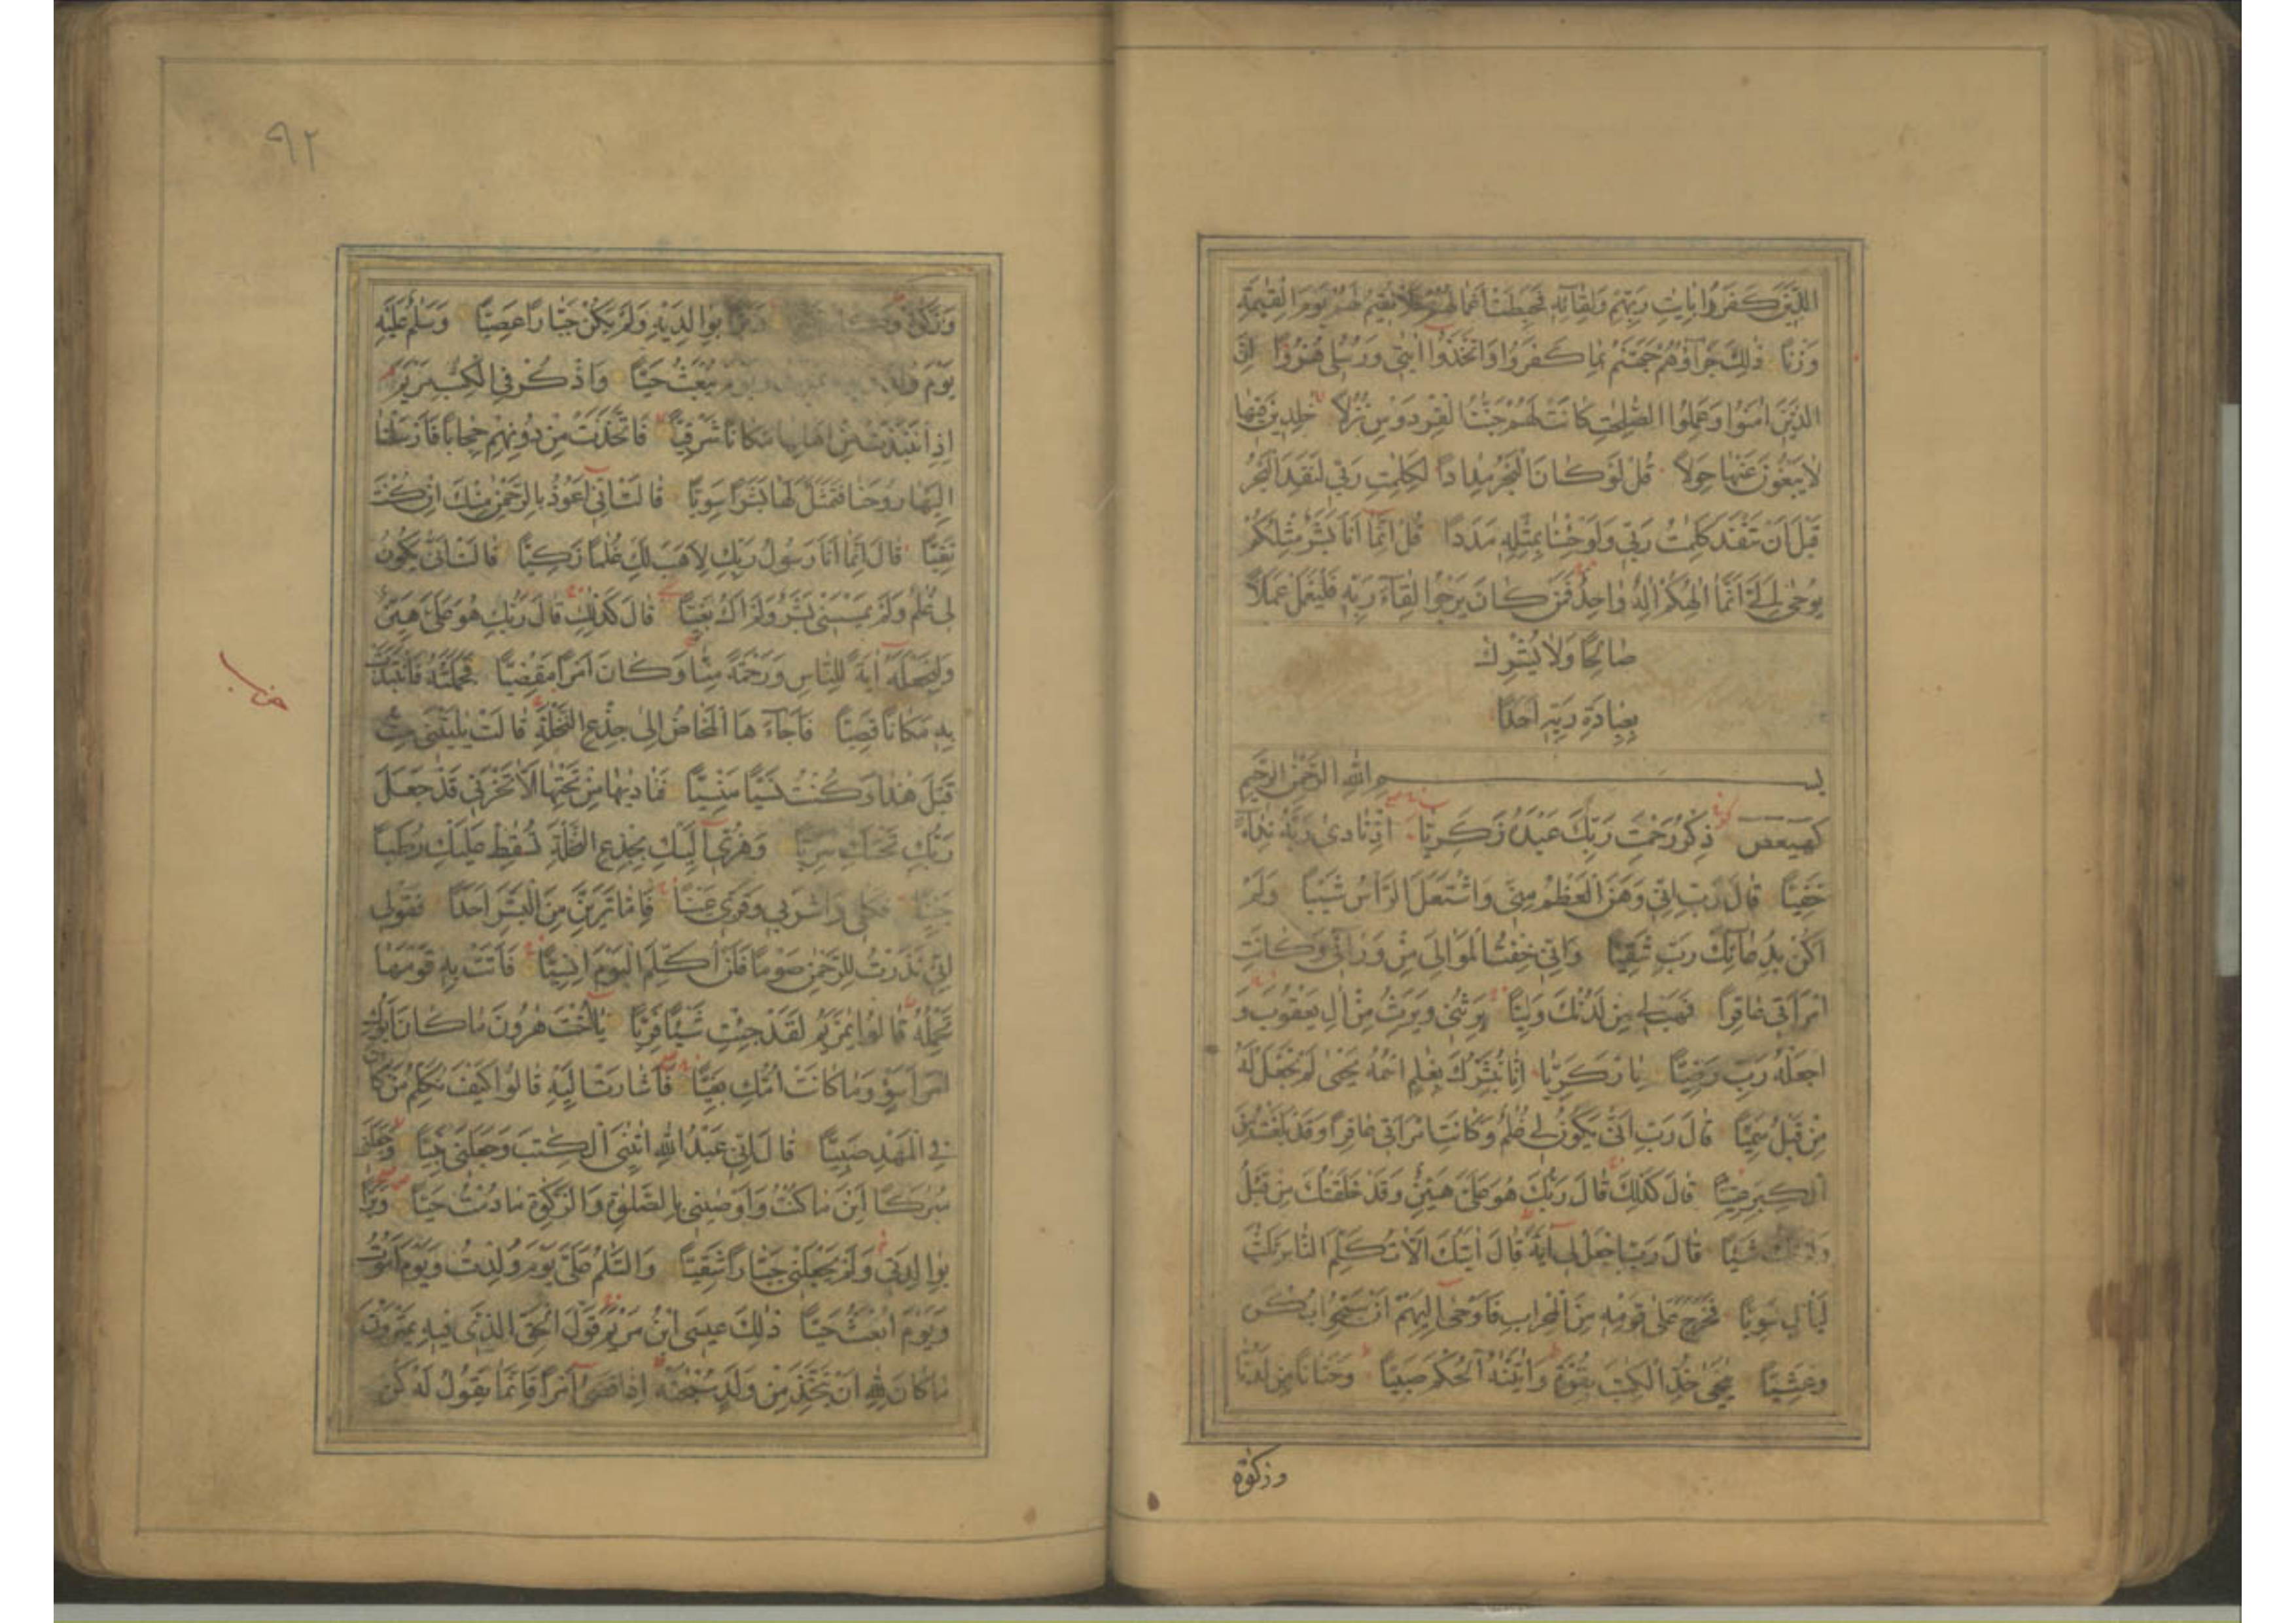 الذين كفروا بايات ربهم ولقائه فحبطت اعمالهم فلا نقيم لهم يوم القيمة
وزنا ذلك جزاؤهم جهنم بما كفروا واتخذوا ايتي ورسلي هزوا ان
الذين امنوا وعملوا الصلحت كانت لهم جنت الفردوس نزلا خلدين فيها
لا يبغون عنها حولا قل لو كان البحر مدادا لكلمت ربي لنفد البحر
قبل ان تنفد كلمت ربي ولو جئنا بمثله مددا قل انما انا بشر مثلكم
يوحى الي انما الهكم اله واحد فمن كان يرجوا لقاء ربه فليعمل عملا
صالحا ولا يشرك
بعبادة ربه احدا
بسم الله الرحمن الرحيم
كهيعص ذكر رحمت ربك عبده زكريا اذ نادى ربه نداء
خفيا قال رب اني وهن العظم مني واشتعل الراس شيبا ولم
اكن بدعائك رب شقيا واني خفت الموالي من ورائي وكانت
امراتي عاقرا فهب لي من لدنك وليا يرثني ويرث من ال يعقوب و
اجعله رب رضيا يا زكريا انا نبشرك بغلم اسمه يحيى لم نجعل له
من قبل سميا قال رب انى يكون لي غلم وكانت امراتي عاقرا وقد بلغت من
الكبر عتيا قال كذلك قال ربك هو علي هين وقد خلقتك من قبل
ولم تك شيئا قال رب اجعل لي اية قال ايتك الا تكلم الناس ثلث
ليال سويا فخرج على قومه من المحراب فاوحى اليهم ان سبحوا بكرة
وعشيا يحيى خذ الكتب بقوة واتينه الحكم صبيا وحنانا من لدنا
وزكوة
٩٢
وزكوة وكان تقيا وبرا بوالديه ولم يكن جبارا عصيا وسلم عليه
يوم ولد ويوم يموت ويوم يبعث حيا واذكر في الكتب مريم
اذ انتبذت من اهلها مكانا شرقيا فاتخذت من دونهم حجابا فارسلنا
اليها روحنا فتمثل لها بشرا سويا قالت اني اعوذ بالرحمن منك ان كنت
تقيا قال انما انا رسول ربك لاهب لك غلما زكيا قالت انى يكون
لي غلم ولم يمسسني بشر ولم اك بغيا قال كذلك قال ربك هو علي هين
ولنجعله اية للناس ورحمة منا وكان امرا مقضيا فحملته فانتبذت
به مكانا قصيا فاجاءها المخاض الى جذع النخلة قالت يليتني مت
قبل هذا وكنت نسيا منسيا فناديها من تحتها الا تحزني قد جعل
ربك تحتك سريا وهزي اليك بجذع النخلة تسقط عليك رطبا
جنيا فكلي واشربي وقري عينا فاما ترين من البشر احدا فقولي
اني نذرت للرحمن صوما فلن اكلم اليوم انسيا فاتت به قومها
تحمله قالوا يمريم لقد جئت شيئا فريا يااخت هرون ما كان ابوك
امرا سوء وما كانت امك بغيا فاشارت اليه قالوا كيف نكلم من كان
في المهد صبيا قال اني عبد الله اتيني الكتب وجعلني نبيا وجعلني
مبركا اين ما كنت واوصيني بالصلوة والزكوة ما دمت حيا وبرا
بوالدتي ولم يجعلني جبارا شقيا والسلم علي يوم ولدت ويوم اموت
ويوم ابعث حيا ذلك عيسى ابن مريم قول الحق الذي فيه يمترون
ما كان لله ان يتخذ من ولد سبحنه اذا قضى امرا فانما يقول له كن